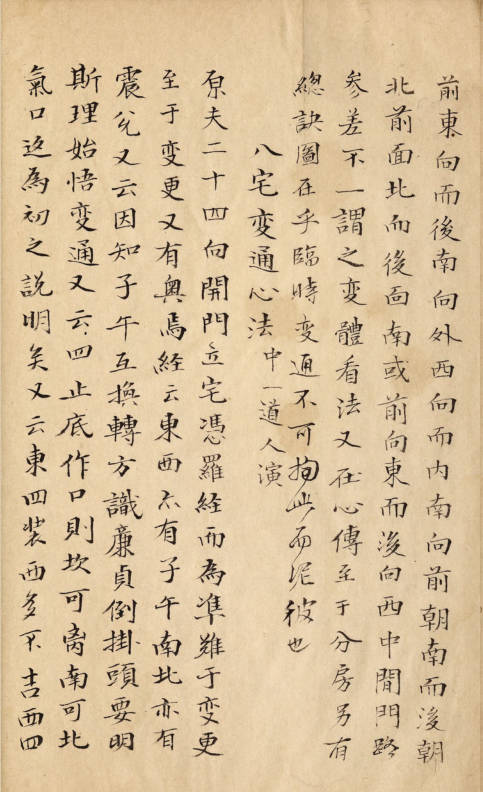 前東向而後南向外西向而内南向前朝南而後朝
北前面北而後面南或前向東而後向西中間門路
參差不一謂之变體看法又在心傳至于分房另有
總訣圖在乎臨時变通不可拘此而泥彼也
八宅变通心法中一道人演
原夫二十四向開門立宅憑羅経而為凖難于变更
至于变更又有奥焉経云東西亦有子午南北亦有
震兌又云因知子午互換轉方識廉貞倒掛頭要明
斯理始悟变通又云四止底作口則坎可离南可北
氣口返為初之説明矣又云東四装西多不吉西四